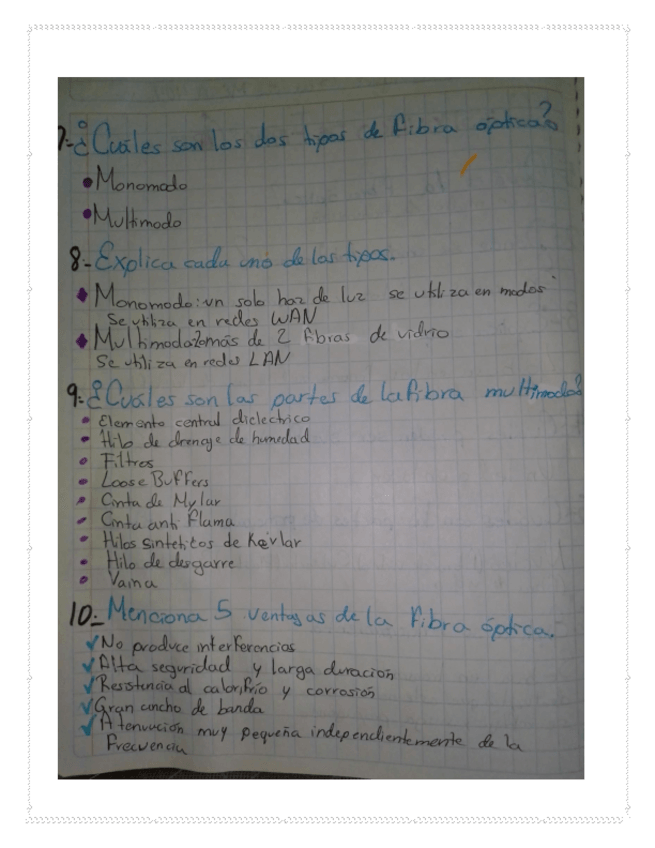 7.-¿Cuáles son los dos tipos de fibra óptica?
Monomodo
Multimodo
8.- Explica cada uno de los tipos.
Monomodo: un solo haz de luz se utiliza en modos
Se utiliza en redes WAN
Multimodo 2 o más de 2 fibras de vidrio
Se utiliza en redes LAN
9.-¿Cuáles son las partes de la fibra multimodo?
Elemento central dielectrico
Hilo de drenaje de humedad
Filtros
Loose Buffers
Cinta de Mylar
Cinta anti flama
Hilos sinteticos de Kevlar
Hilo de desgarre
Vaina
10.- Menciona 5 ventajas de la fibra óptica.
No produce interferencias
Alta seguridad y larga duración
Resistencia al calor, frío y corrosión
Gran ancho de banda
Atenuación muy pequeña independientemente de la
Frecuencia